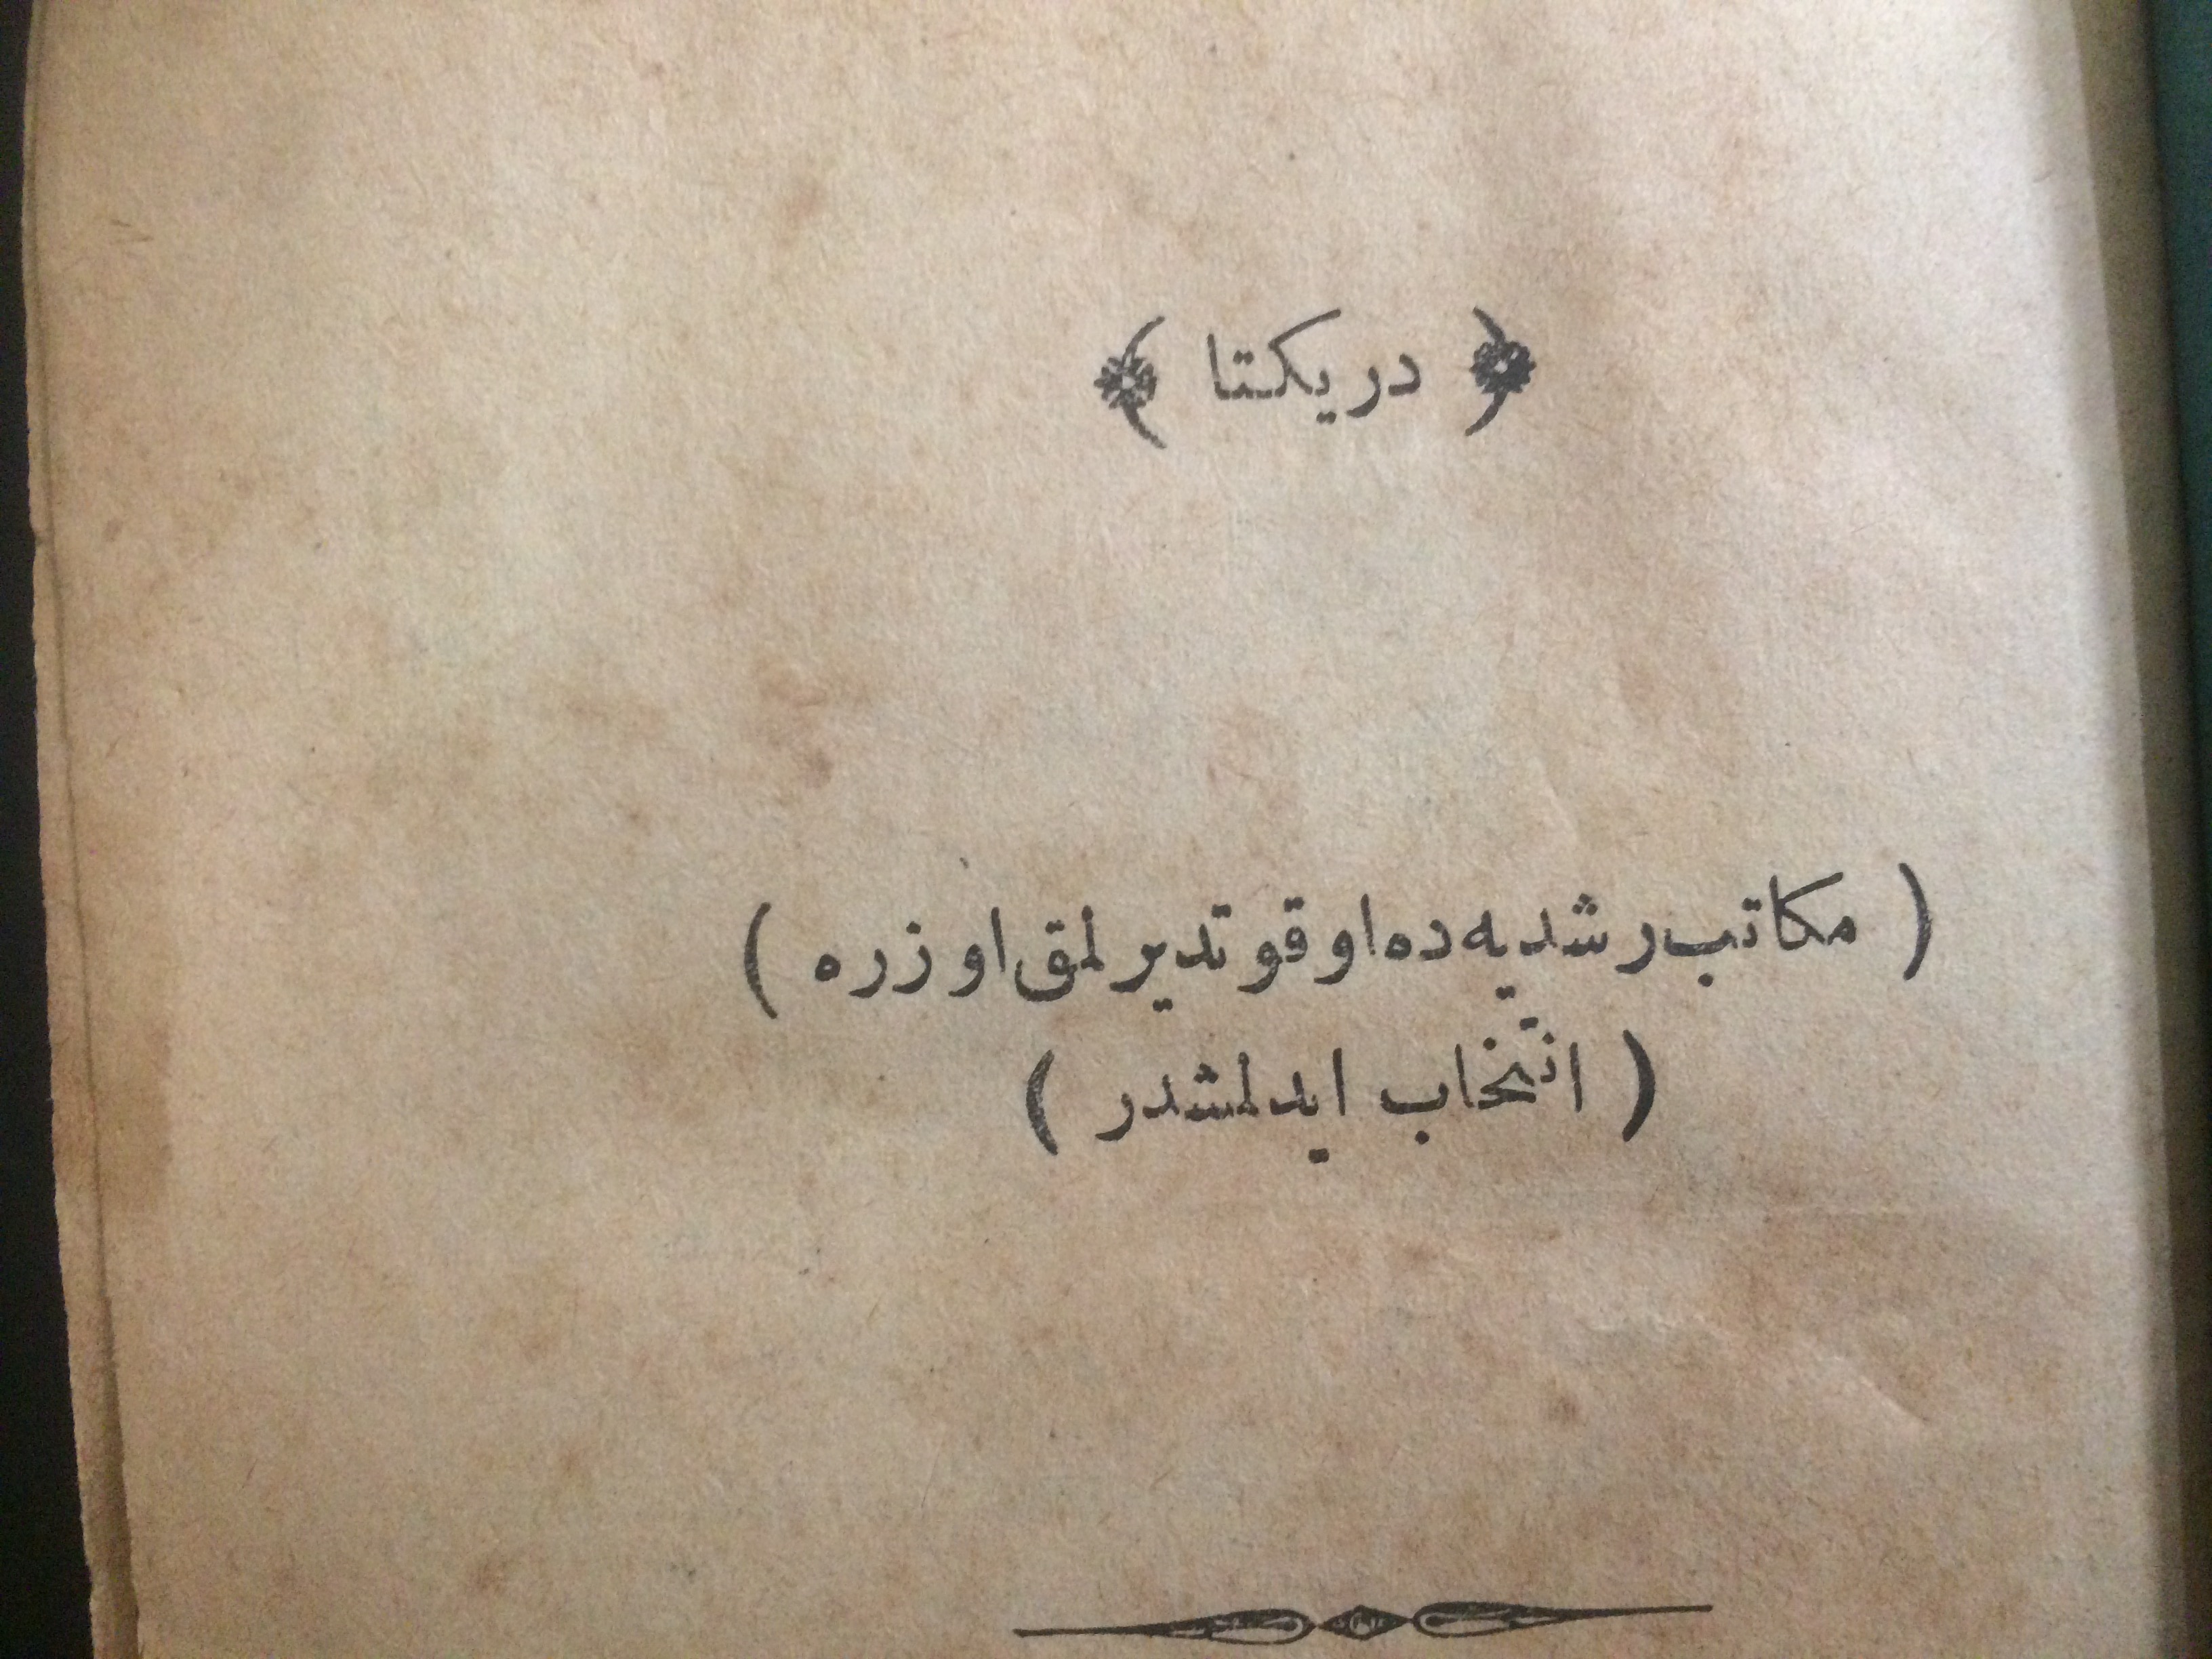 ﴿ دریکتا ﴾
( مکاتب رشدیه ده اوقوتدیرلمق اوزره )
( انتخاب ایدلمشدر )